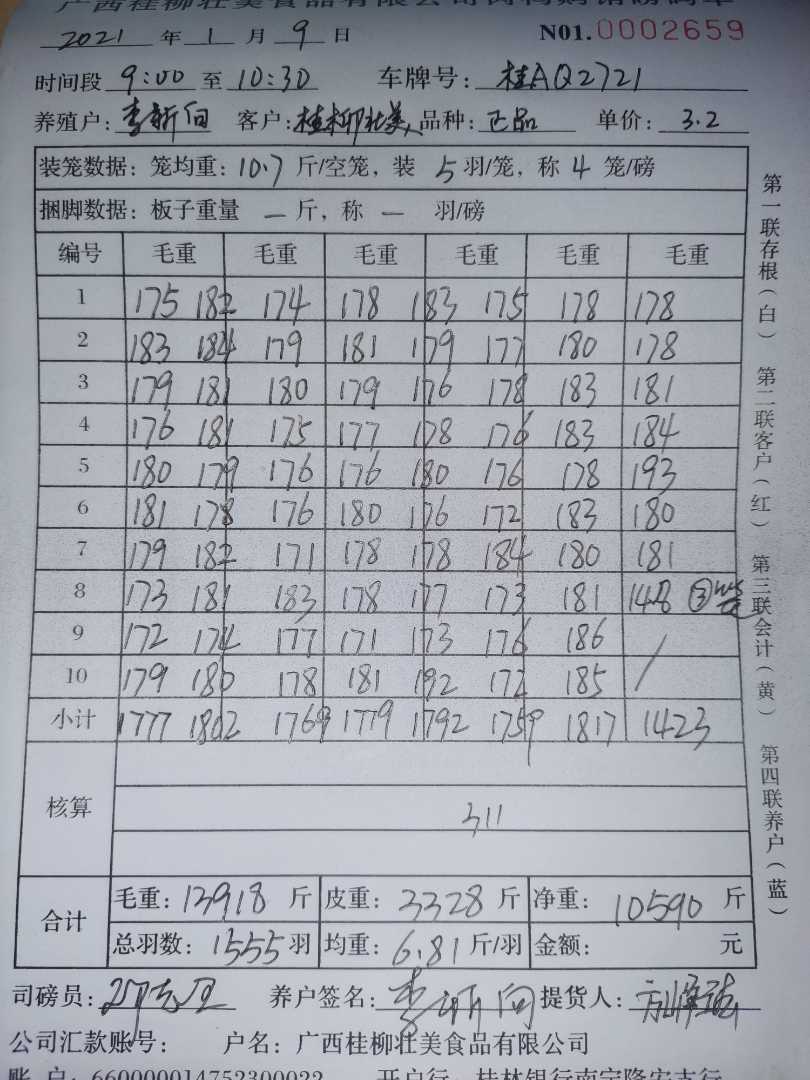 2021 年 1 月 9 日 N01.0002659
时间段 9:00 至 10:30 车牌号: 桂AQ2721
养殖户: 李新向 客户: 桂柳壮美 品种: 正品 单价: 3.2
装笼数据: 笼均重: 10.7 斤/空笼, 装 5 羽/笼, 称 4 笼/磅
捆脚数据: 板子重量 — 斤, 称 — 羽/磅
编号 毛重 毛重 毛重 毛重 毛重 毛重
1 175 182 174 178 183 175 178 178
2 183 184 179 181 179 177 180 178
3 179 181 180 179 176 178 183 181
4 176 181 175 177 178 176 183 184
5 180 179 176 176 180 176 178 193
6 181 178 176 180 176 172 183 180
7 179 182 171 178 178 184 180 181
8 173 181 183 178 177 173 181 148 ③笼
9 172 174 177 171 173 176 186 /
10 179 180 178 181 192 172 185 /
小计 1777 1802 1769 1779 1792 1759 1817 1423
核算
311
合计
毛重: 13918 斤 皮重: 3328 斤 净重: 10590 斤
总羽数: 1555 羽 均重: 6.81 斤/羽 金额: 元
司磅员: 养户签名: 李新向 提货人:
公司汇款账号: 户名: 广西桂柳壮美食品有限公司
账 户: 660000014752300022 开户行: 桂林银行南宁隆安支行
第一联存根(白) 第二联客户(红) 第三联会计(黄) 第四联养户(蓝)